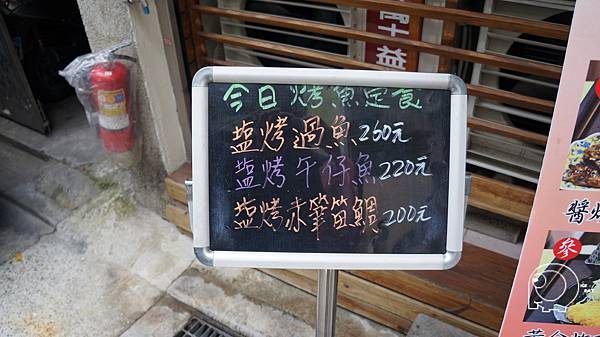 今日烤魚定食
盐烤過魚260元
盐烤午仔魚220元
盐烤赤筆笛鯛200元
醬烤
參